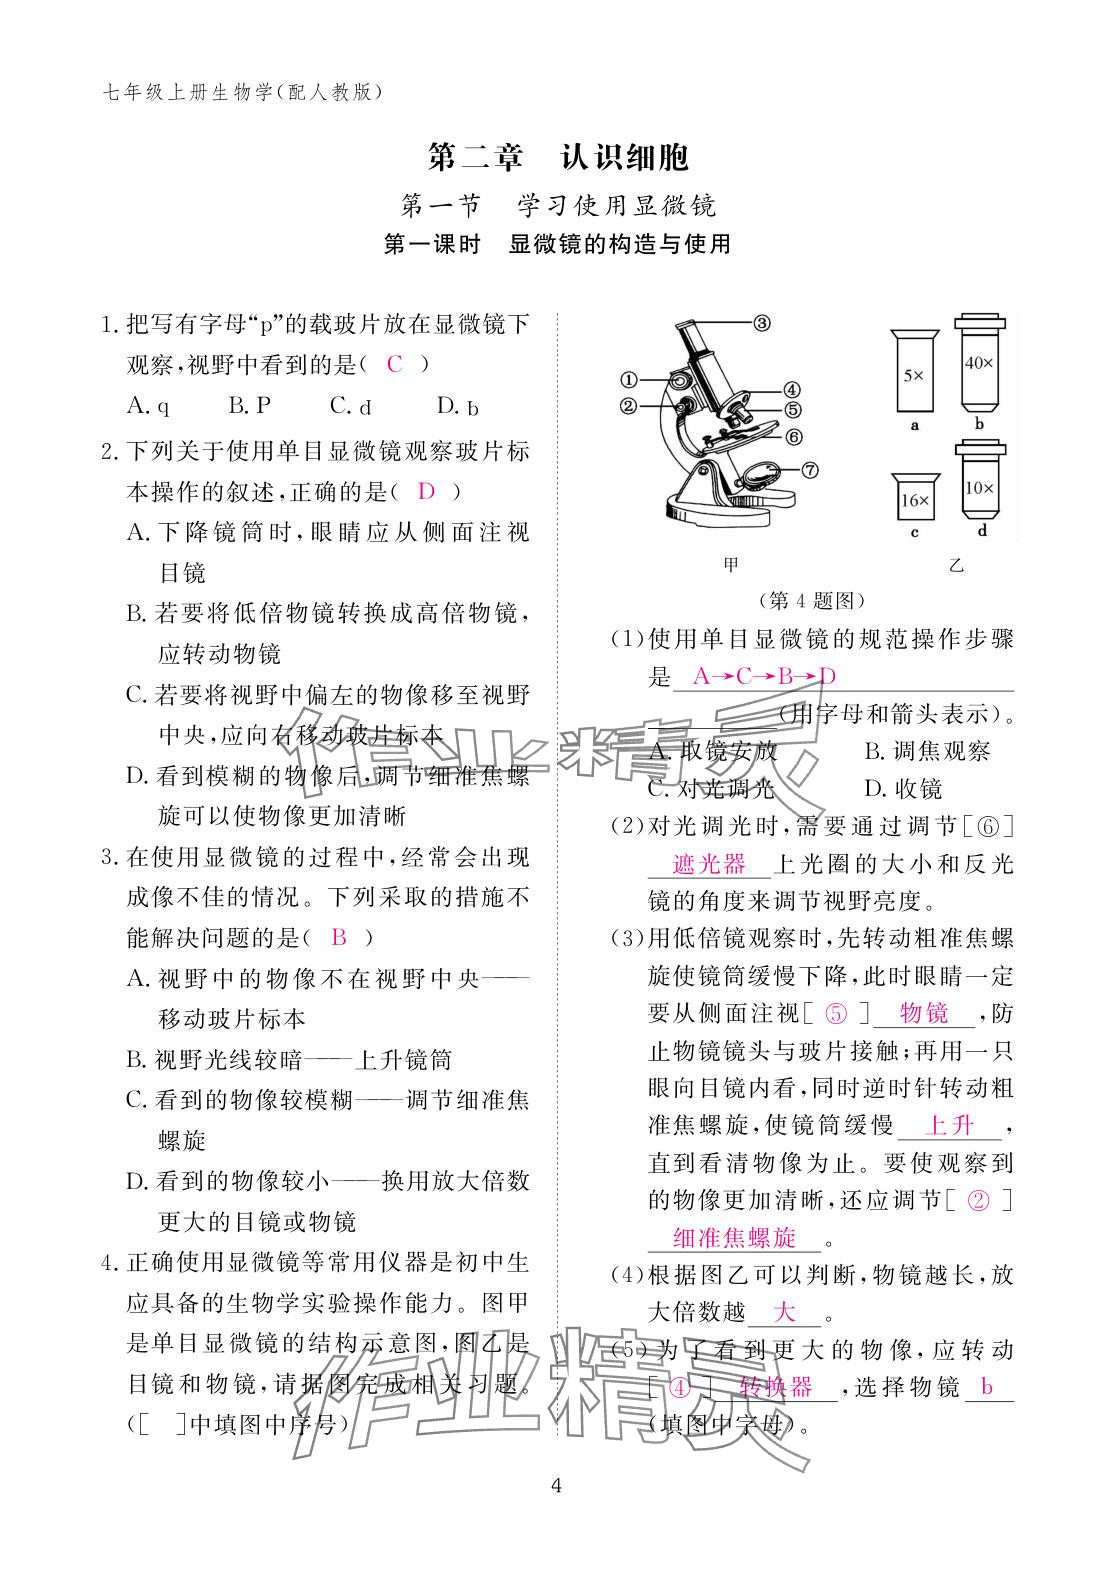 七年级上册生物学(配人教版)
第二章 认识细胞
第一节 学习使用显微镜
第一课时 显微镜的构造与使用
1. 把写有字母“p”的载玻片放在显微镜下
观察,视野中看到的是( C )
A. q B. P C. d D. b
2. 下列关于使用单目显微镜观察玻片标
本操作的叙述,正确的是( D )
A. 下降镜筒时,眼睛应从侧面注视
目镜
B. 若要将低倍物镜转换成高倍物镜,
应转动物镜
C. 若要将视野中偏左的物像移至视野
中央,应向右移动玻片标本
D. 看到模糊的物像后,调节细准焦螺
旋可以使物像更加清晰
3. 在使用显微镜的过程中,经常会出现
成像不佳的情况。下列采取的措施不
能解决问题的是( B )
A. 视野中的物像不在视野中央——
移动玻片标本
B. 视野光线较暗——上升镜筒
C. 看到的物像较模糊——调节细准焦
螺旋
D. 看到的物像较小——换用放大倍数
更大的目镜或物镜
4. 正确使用显微镜等常用仪器是初中生
应具备的生物学实验操作能力。图甲
是单目显微镜的结构示意图,图乙是
目镜和物镜,请据图完成相关习题。
([ ]中填图中序号)
③
①
②
④
⑤
⑥
⑦
5×
40×
a b
16×
10×
c d
甲 乙
(第 4 题图)
(1)使用单目显微镜的规范操作步骤
是 A→C→B→D
(用字母和箭头表示)。
A. 取镜安放 B. 调焦观察
C. 对光调光 D. 收镜
(2)对光调光时,需要通过调节[⑥]
遮光器 上光圈的大小和反光
镜的角度来调节视野亮度。
(3)用低倍镜观察时,先转动粗准焦螺
旋使镜筒缓慢下降,此时眼睛一定
要从侧面注视[ ⑤ ] 物镜 ,防
止物镜镜头与玻片接触;再用一只
眼向目镜内看,同时逆时针转动粗
准焦螺旋,使镜筒缓慢 上升 ,
直到看清物像为止。要使观察到
的物像更加清晰,还应调节[ ② ]
细准焦螺旋 。
(4)根据图乙可以判断,物镜越长,放
大倍数越 大 。
(5)为了看到更大的物像,应转动
[ ④ ] 转换器 ,选择物镜 b
(填图中字母)。
作业精灵
作业精灵
4